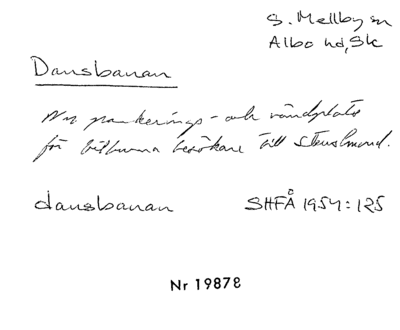 S. Mellby sn
Albo hd, Sk
Dansbanan
Nu parkerings- och vändplats
för bilburna besökare till Stenshuvud.
dansbanan SHFÅ 1954:125
Nr 19878